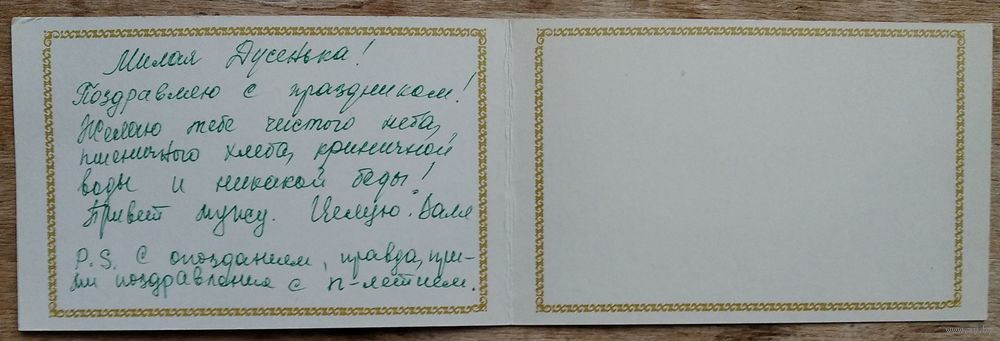 Милая Дусенька!
Поздравляю с праздником!
Желаю тебе чистого неба,
пшеничного хлеба, криничной
воды и никакой беды!
Привет мужу. Целую. Валя
P.S. С опозданием, правда, при-
ми поздравления с п-летием.